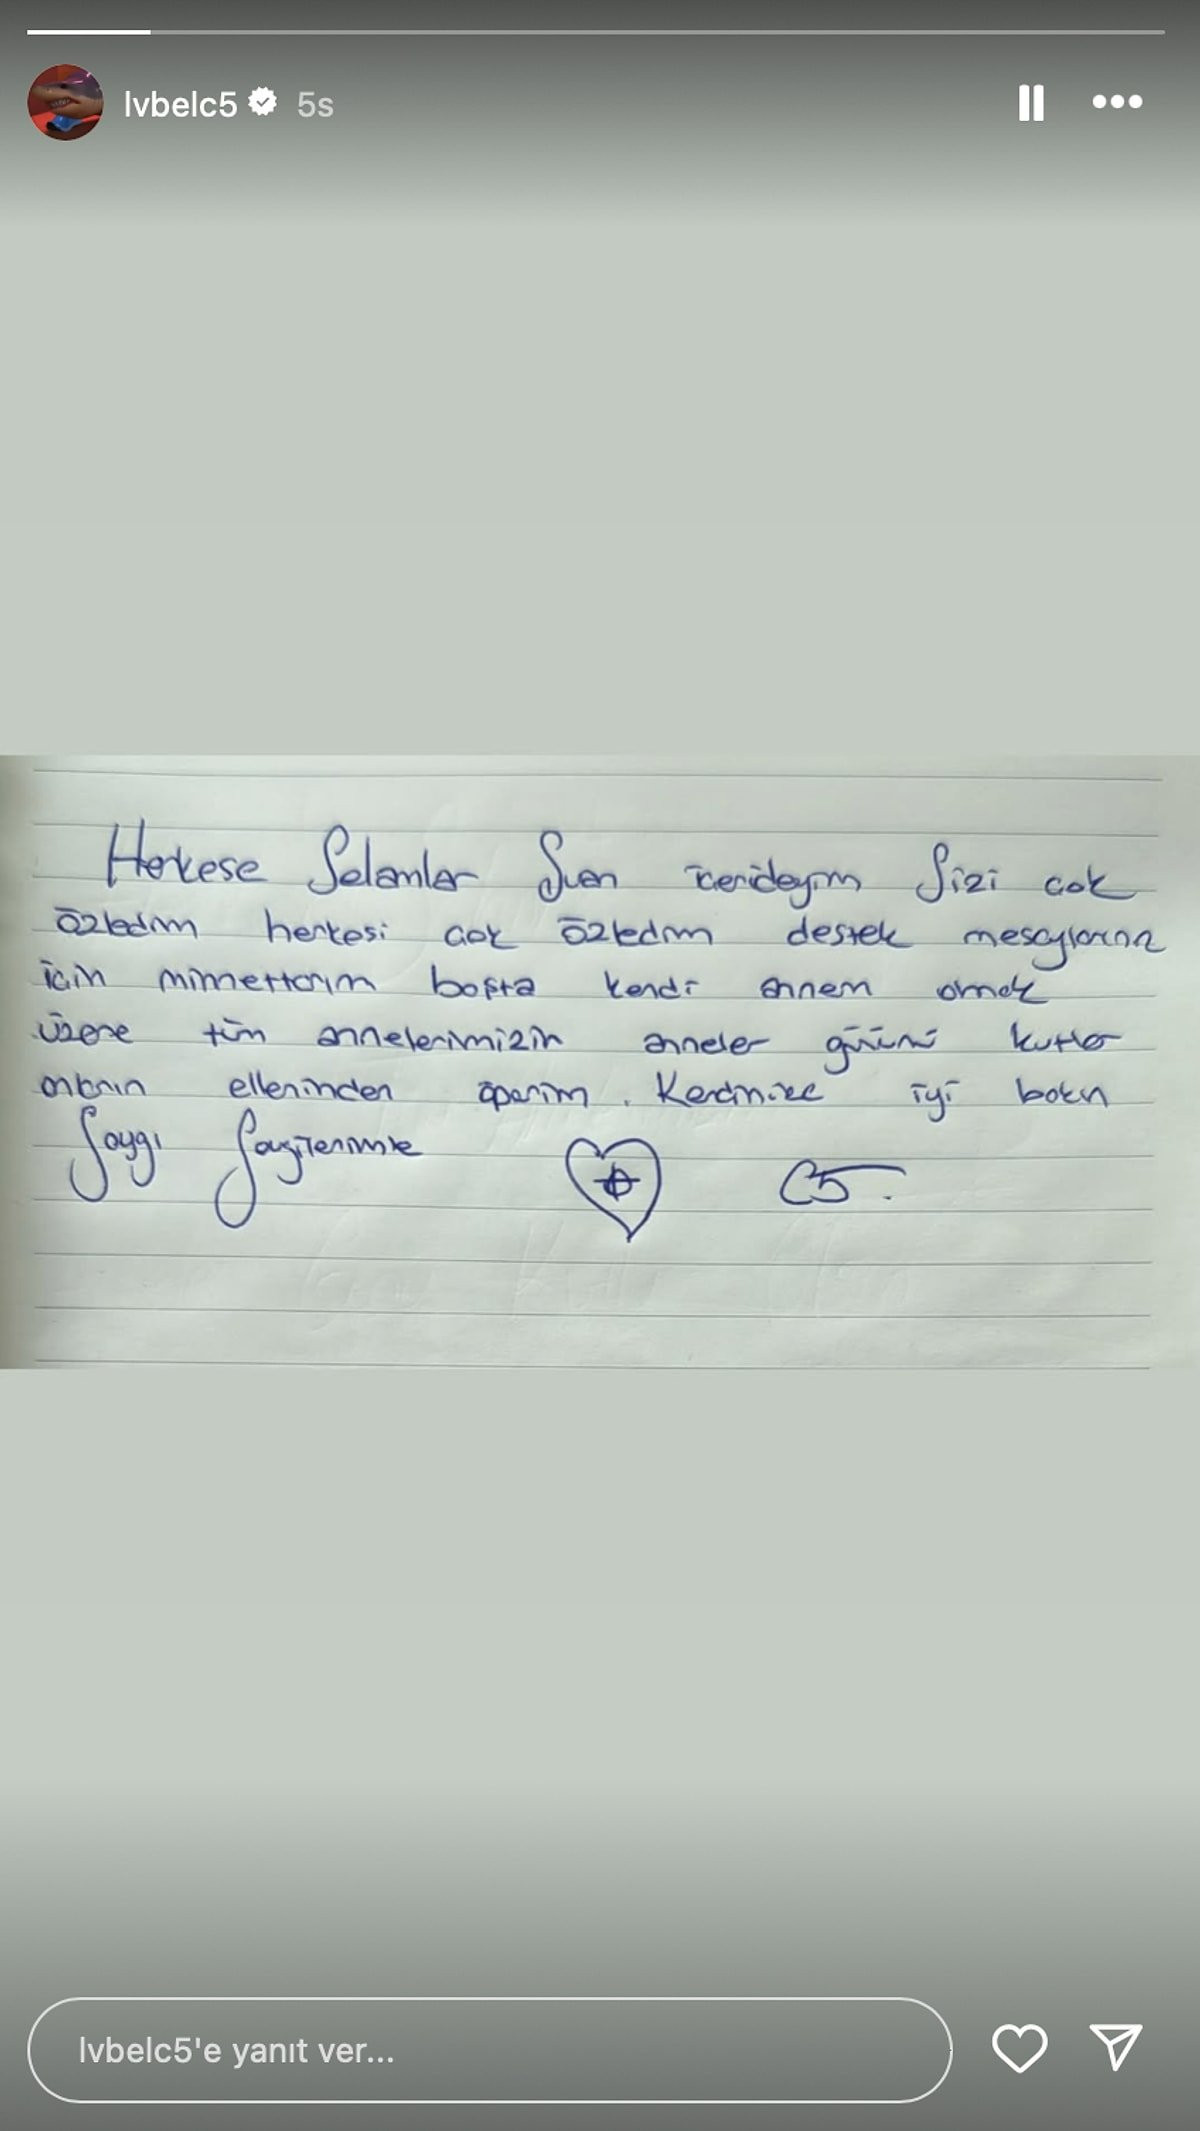 lvbelc5 5s
Herkese Selamlar Şuan içerideyim Sizi cok
özledim herkesi cok özledim destek mesajlarınız
için minnettarım başta kendi annem olmak
üzere tüm annelerimizin anneler gününü kutlar
onların ellerinden öperim. Kendinize iyi bakın
Saygı Sevgilerimle
C5.
lvbelc5'e yanıt ver...